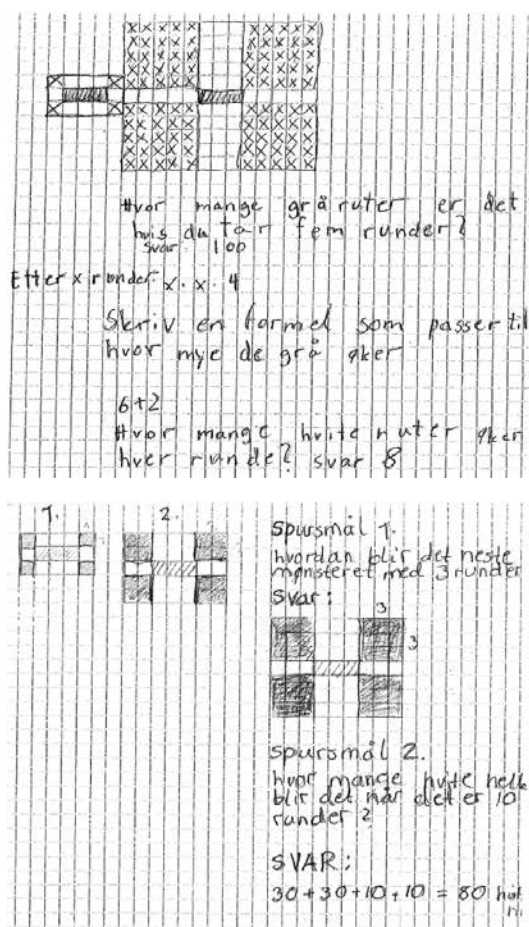 Hvor mange grå ruter er det
hvis du tar fem runder?
svar: 100
Etter x runder: x · x · 4
Skriv en formel som passer til
hvor mye de grå øker
6+2
Hvor mange hvite ruter øker
hver runde? svar 8
1.
2.
Spursmål 1.
hvordan blir det neste
mønsteret med 3 runder
Svar:
3
3
spursmål 2.
hvor mange hvite
blir det når det er 10
runder?
SVAR:
30+30+10+10 = 80